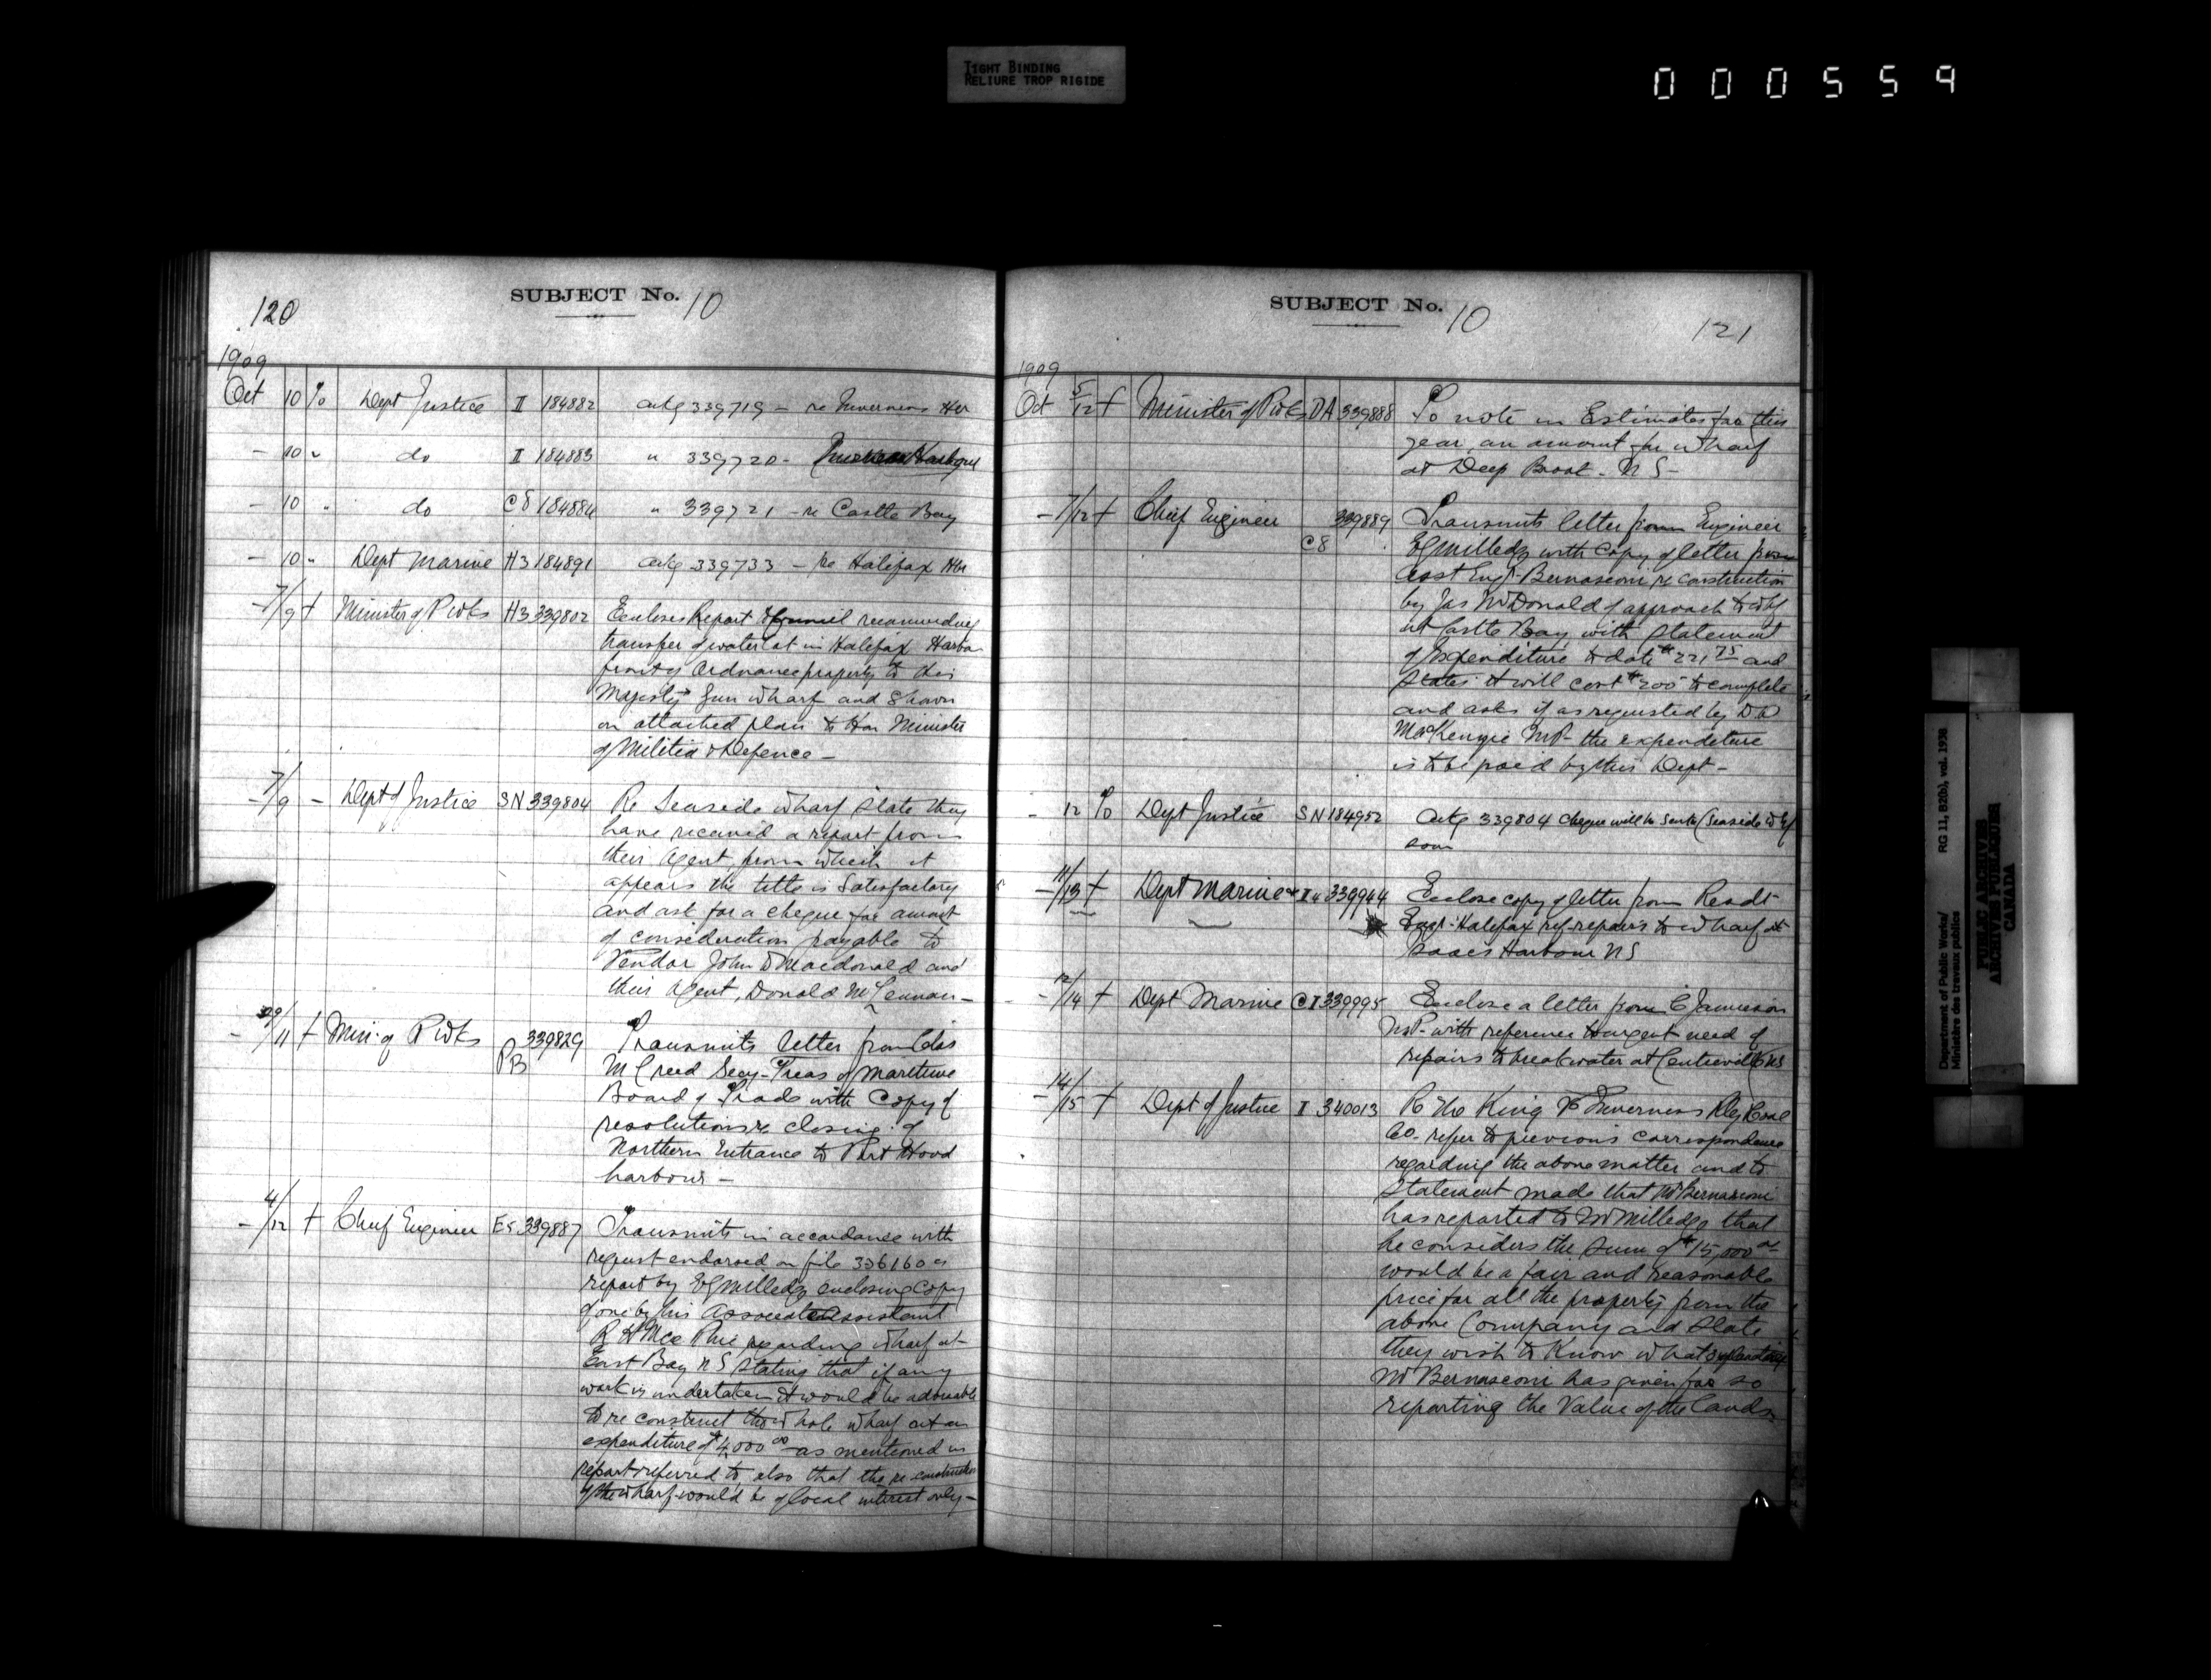 TIGHT BINDING
RELIURE TROP RIGIDE
000559
120
SUBJECT No. 10
1909
Oct 10 % Dept Justice II 184882 ackg 339719 - re Inverness Hbr
- 10 " do II 184883 " 339720 -
- 10 " do C8 184884 " 339721 - re Castle Bay
- 10 " Dept Marine H3 184891 ackg 339733 - re Halifax Hbr
- 7/9 + Minister of P Wks H3 339802 Encloses Report to Council recommending
transfer of water lot in Halifax Harbor
front of Ordnance property to His
Majesty's Gun Wharf and shown
on attached plan to Hon Minister
of Militia & Defence -
- 7/9 - Dept of Justice SN 339804 Re Seaside Wharf state they
have received a report from
their Agent, from which it
appears the title is satisfactory
and ask for a cheque for amount
of consideration payable to
Vendor John D Macdonald and
their Agent, Donald McLennan -
- /11 + Min. of P Wks PB 339829 Transmits letter from Chas
M Creed Secy-Treas of Maritime
Board of Trade with copy of
resolutions re closing of
Northern Entrance to Port Hood
harbour -
- 4/12 + Chief Engineer ES 339887 Transmits in accordance with
request endorsed on file 336160 a
report by EG Milledge enclosing copy
of one by his Associate Assistant
R H regarding wharf at
East Bay N S stating that if any
work is undertaken it would be advisable
to re construct the whole wharf at an
expenditure of $4,000 00 as mentioned in
report referred to, also that the re-construction
of the wharf would be of local interest only -
SUBJECT No. 10
121
1909
Oct 5/12 + Minister of P Wks DA 339888 To note in Estimates for this
year an amount for wharf
at Deep Brook - N S -
- 7/12 + Chief Engineer C8 339889 Transmits letter from Engineer
EG Milledge with copy of letter from
asst Engr. Bernasconi re construction
by Jas McDonald of approach to whf
at Castle Bay with statement
of Expenditure to date $221 75 and
states it will cost $200 to complete
and asks if as requested by D D
MacKenzie MP - the expenditure
is to be paid by this Dept -
- 12 % Dept Justice SN 184952 Ackg 339804 cheque will be sent (Seaside Whf
soon
- 11/13 + Dept Marine 339944 Enclose copy of letter from Resdt
Engr. Halifax ref. repairs to wharf at
Isaacs Harbour N S
- 12/14 + Dept Marine CI 339995 Enclose a letter from C Jamieson
M P. with reference to urgent need of
repairs to breakwater at Centreville NS
- 14/15 + Dept of Justice I 340013 Re The King vs Inverness Rly & Coal
Co. refer to previous correspondence
regarding the above matter and to
statement made that Mr Bernasconi
has reported to Mr Milledge that
he considers the sum of $15,000 00
would be a fair and reasonable
price for all the property from the
above Company and state
they wish to know what explanation
Mr Bernasconi has given for so
reporting the value of the lands
Department of Public Works/ RG 11, B2(b), vol. 1938
Ministère des travaux publics
PUBLIC ARCHIVES
ARCHIVES PUBLIQUES
CANADA